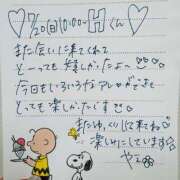 ♡7/20(日)10:00〜Hくん♡
また会いに来てくれて
とーっても嬉しかったよ
今日もいろいろなアレができて
とっても楽しかったです
またゆっくり来てね
楽しみにしています